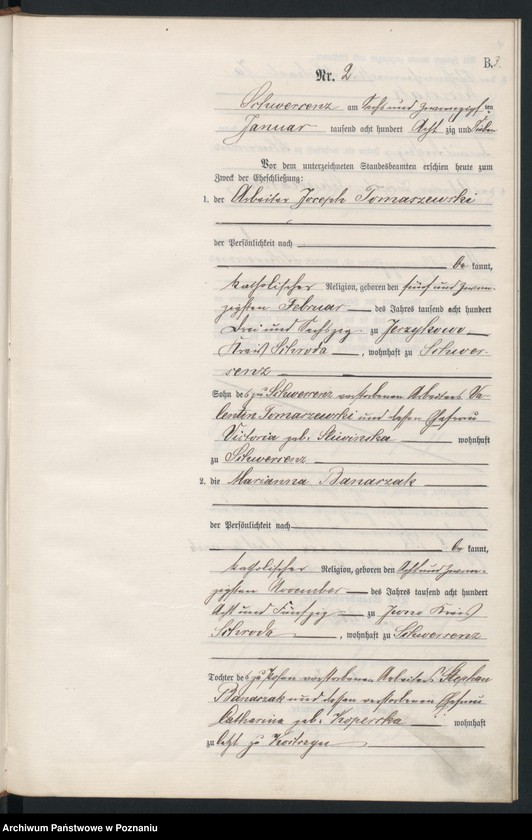 B. 3.
Nr. 2
Schwersenz am Sechs und zwanzigsten
Januar tausend acht hundert Acht zig und Sieben
Vor dem unterzeichneten Standesbeamten erschien heute zum
Zweck der Eheschließung:
1. der Arbeiter Joseph Tomaszewski
der Persönlichkeit nach
be kannt,
katholischer Religion, geboren den fünf und zwan-
zigsten Februar des Jahres tausend acht hundert
Drei und Sechszig zu Jerzykowo
Kreis Schroda, wohnhaft zu Schwer-
senz
Sohn des zu Schwersenz verstorbenen Arbeiters Va-
lentin Tomaszewski und dessen Ehefrau
Victoria geb. Sliwinska wohnhaft
zu Schwersenz
2. die Marianna Banarzak
der Persönlichkeit nach
be kannt,
katholischer Religion, geboren den Acht und zwan-
zigsten November des Jahres tausend acht hundert
Acht und Fünfzig zu Iwno Kreis
Schroda, wohnhaft zu Schwersenz
Tochter des zu Posen verstorbenen Arbeiters Stephan
Banarzak und dessen verstorbenen Ehefrau
Catharina geb. wohnhaft
zu letzt zu
Archiwum Państwowe w Poznaniu